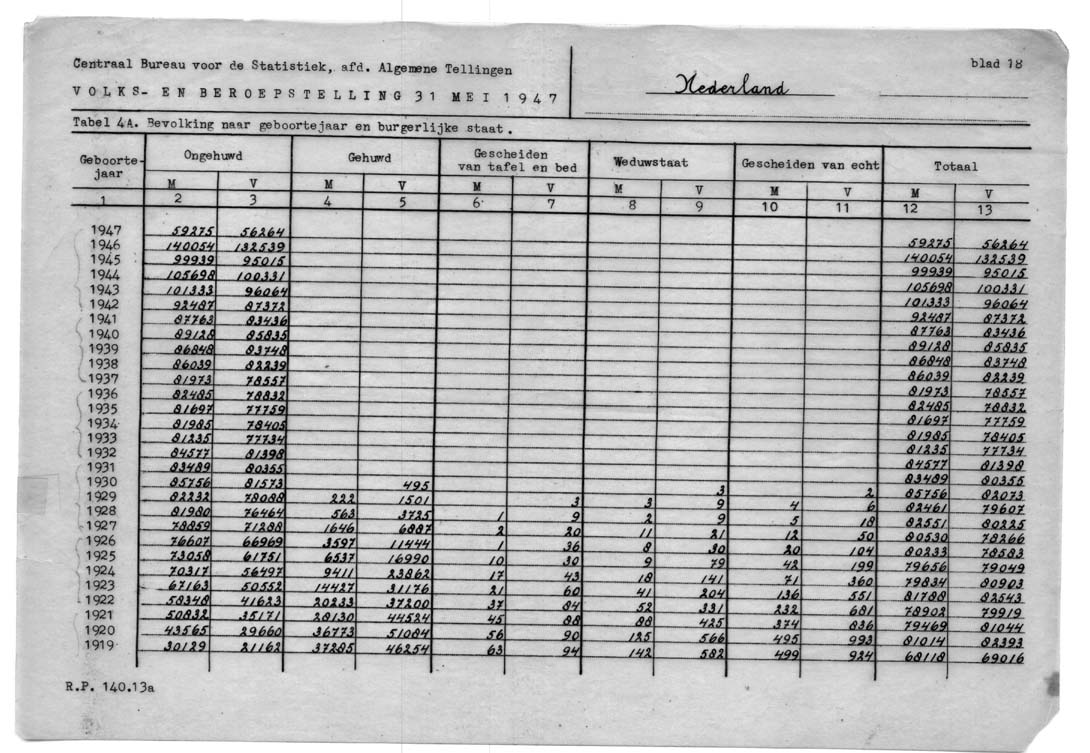 Centraal Bureau voor de Statistiek, afd. Algemene Tellingen
VOLKS- EN BEROEPSTELLING 31 MEI 1947
Nederland
blad 18
Tabel 4A. Bevolking naar geboortejaar en burgerlijke staat.
Geboorte-jaar Ongehuwd Gehuwd Gescheiden van tafel en bed Weduwstaat Gescheiden van echt Totaal
M V M V M V M V M V M V
1 2 3 4 5 6 7 8 9 10 11 12 13
1947 59275 56264 59275 56264
1946 140054 132539 140054 132539
1945 99939 95015 99939 95015
1944 105698 100331 105698 100331
1943 101333 96064 101333 96064
1942 92487 87372 92487 87372
1941 87763 83436 87763 83436
1940 89128 85835 89128 85835
1939 86848 83748 86848 83748
1938 86039 82239 86039 82239
1937 81973 78557 81973 78557
1936 82485 78832 82485 78832
1935 81697 77759 81697 77759
1934 81985 78405 81985 78405
1933 81235 77734 81235 77734
1932 84577 81398 84577 81398
1931 83489 80355 83489 80355
1930 85756 81573 495 3 2 85756 82073
1929 82232 78088 222 1501 3 3 9 4 6 82461 79607
1928 81980 76464 563 3725 1 9 2 9 5 18 82551 80225
1927 78859 71288 1646 6887 2 20 11 21 12 50 80530 78266
1926 76607 66969 3597 11444 1 36 8 30 20 104 80233 78583
1925 73058 61751 6537 16990 10 30 9 79 42 199 79656 79049
1924 70317 56497 9411 23862 17 43 18 141 71 360 79834 80903
1923 67163 50552 14427 31176 21 60 41 204 136 551 81788 82543
1922 58348 41623 20233 37200 37 84 52 331 232 681 78902 79919
1921 50832 35171 28130 44524 45 88 88 425 374 836 79469 81044
1920 43565 29660 36773 51084 56 90 125 566 495 993 81014 82393
1919 30129 21162 37285 46254 63 94 142 582 499 924 68118 69016
R.P. 140.13a